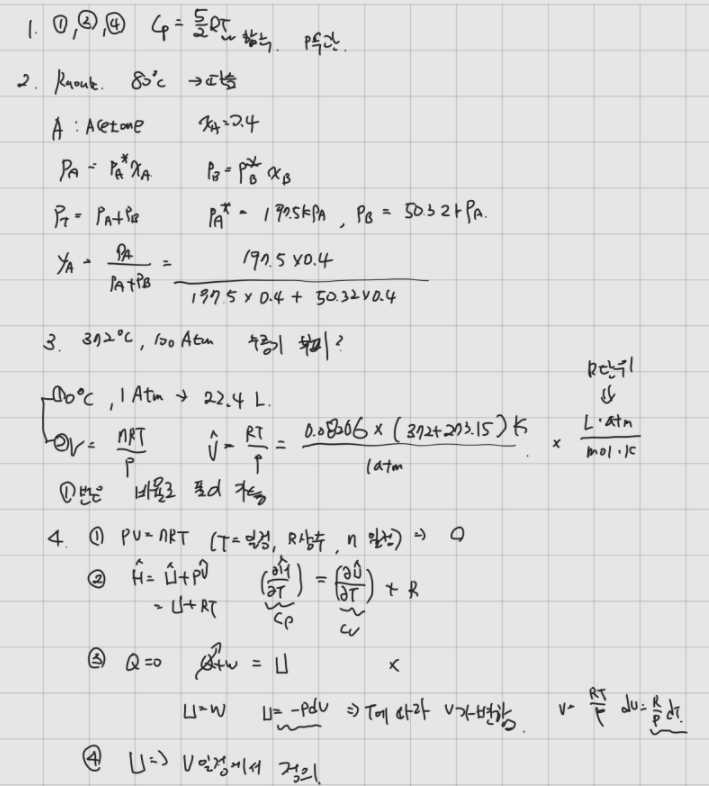 1. ①,②,④ Cp = 5/2 RT 함수. P무관.
2. Raoult. 80°C →
A : Acetone xA=0.4
PA = PA* xA PB = PB* xB
PT = PA+PB PA* = 197.5kPA, PB = 50.32kPA.
yA = PA / (PA+PB) = 197.5 x0.4 / (197.5 x 0.4 + 50.32x0.4)
3. 372°C, 100 Atm 수증기 부피?
①0°C, 1 Atm → 22.4 L.
②V = nRT/P V̂ = RT/P = 0.08206 x (372+273.15) K / 1atm x L·atm / mol·K
R단위 ⇓
①번은 비율로 풀이 가능
4. ① PV=nRT (T=일정, R상수, n 일정) ⇒ O
② Ĥ = Û+PV̂ (∂Ĥ/∂T) = (∂Û/∂T) + R
= U+RT Cp Cv
③ Q=0 Q+w = U x
U=w U= -Pdv ⇒ T에 따라 V가 변함. V= RT/P dv= R/P dT.
④ U⇒ V 일정에서 정의.